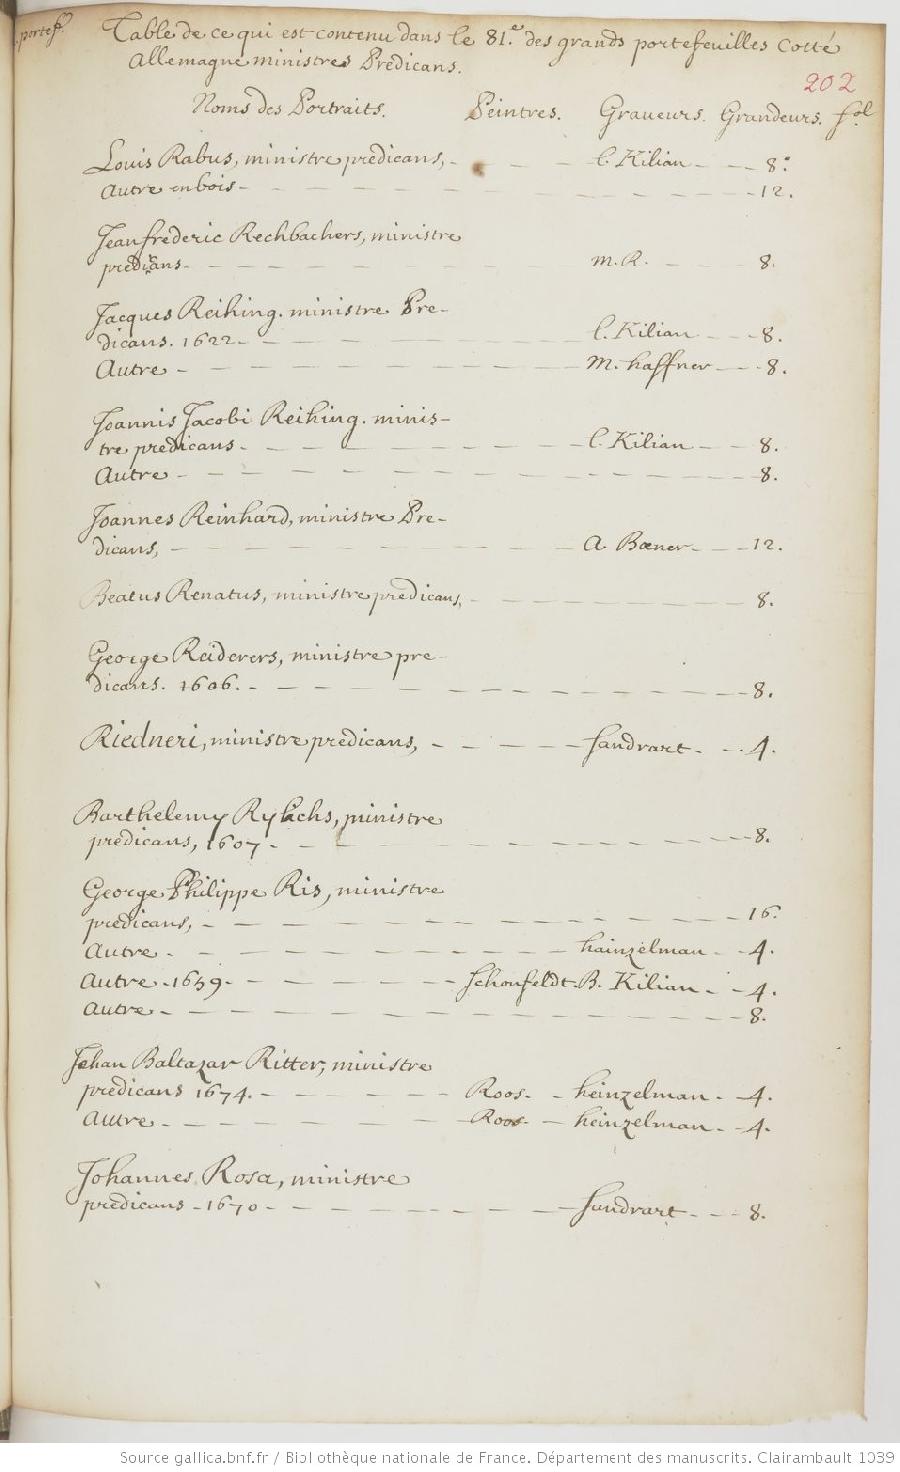 portef.
Table de ce qui est contenu dans le 81.e des grands portefeuilles cotté
Allemagne ministres Prédicans.
202
Noms des Portraits. Peintres. Graveurs. Grandeurs. fol.
Louis Rabus, ministre prédicans, - - - - l. Kilian - - - 8.
Autre en bois - - - - - - - 12.
Jean frederic Rechbachers, ministre
prédicans - - - - - m. R. - - - 8.
Jacques Reihing. ministre Pre-
dicans. 1622 - - - - - l. Kilian - - - 8.
Autre - - - - - m. haffner - - - 8.
Joannis Jacobi Reihing. minis-
tre prédicans - - - - - l. Kilian - - - 8.
Autre - - - - - 8.
Joannes Reinhard, ministre Pre-
dicans, - - - - - A. Bœner - - - 12.
Beatus Renatus, ministre prédicans, - - - - - 8.
George Reiderers, ministre pre
dicans. 1606. - - - - - 8.
Riedneri, ministre prédicans, - - - - - sandrart - - - 4.
Barthelemy Rylichs, ministre
prédicans, 1607 - - - - - 8.
George Philippe Ris, ministre
prédicans, - - - - - 16.
Autre - - - - - hainzelman - - 4.
Autre - 1659 - - - - - Schonfeldt - B. Kilian - - 4.
Autre - - - - - 8.
Jehan Baltazar Ritter, ministre
prédicans 1674. - - - - - Roos - - heinzelman - - 4.
Autre - - - - - Roos - - heinzelman - - 4.
Johannes Rosa, ministre
prédicans - 1670 - - - - - Sandrart - - - 8.
Source gallica.bnf.fr / Bibliothèque nationale de France. Département des manuscrits. Clairambault 1039